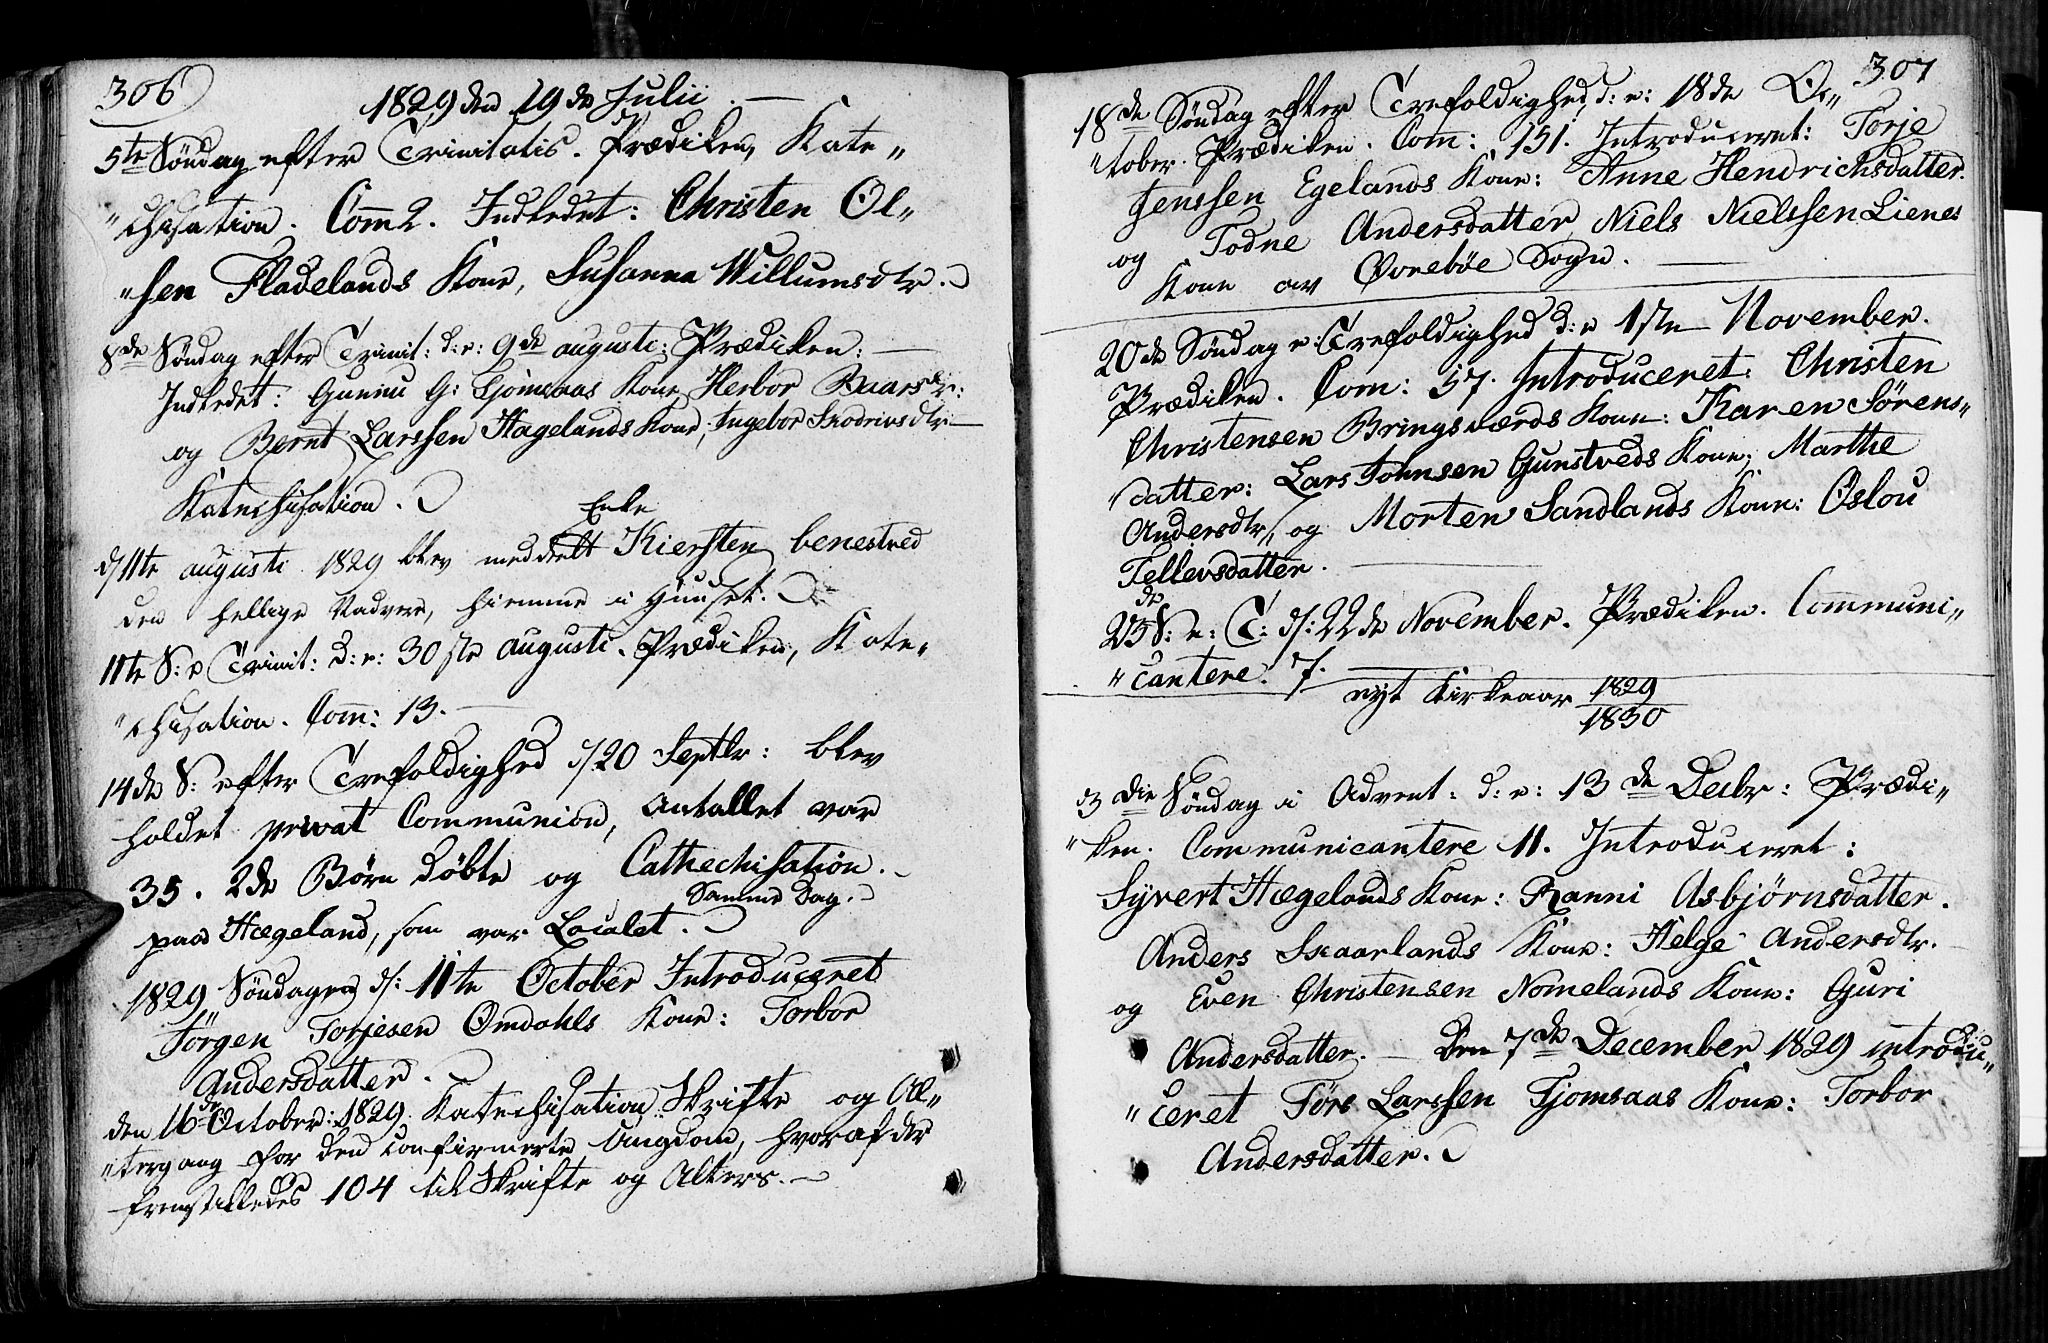 306
1829 den 19de Julii. —
5te Søndag efter Trinitatis. Prædiken, Kate„
„chisation. Com̅ 2. Indledet: Christen Ol„
„sen Fladelands Kone, Susanna Willumsdtr.
8de Søndag efter Trinit: d: e: 9de augusti: Prædiken: —
Indledet: Gunnu G: Tjomsaas Kone Herbor Baarsdtr:
og Bernt Larssen Hagelands Kone, Ingebor —
Katechisation.
Enke
d/11te augusti 1829 blev meddelt Kiersten benestved
den hellige Nadvere, hiemme i Huuset.
11te S: e Trinit: d: e: 30ste augusti. Prædiken, Kate„
„chisation. Com̅: 13. —
14de S: efter Trefoldighed d/20 Septbr: blev
holdet privat Communion, Antallet var
35. 2de Børn døbte og Cathechisation.
Samme Dag.
paa Hægeland, som var Localet.
1829 Søndagen d/: 11te October Introduceret
Jörgen Torjesen Omdahls Kone: Torbor
Andersdatter.
den 16de October: 1829. Katechisation: Skrifte og Al„
„tergang for den confirmerte Ungdom, hvoraf der
fremstilledes 104 til Skrifte og Alters. —
307
18de Søndag efter Trefoldighed, d: e: 18de Oc„
„tober. Prædiken. Com: 151. Introduceret: Torje
Jenssen Egelands Kone: Anne Hendrichsdatter.
og Todne Andersdatter, Niels Nielssen Lienes
Kone av Øvrebøe Sogn. —
20de Søndag e: Trefoldighed d: e 1ste November.
Prædiken. Com: 57. Introduceret: Christen
Christensen Bringsværds Kone: Karen Sörens„
„datter: Lars Johnsen Gunstveds Kone, Marthe
Andersdtr, og Morten Sandlands Kone: Oslou
Tellevsdatter. —
23de S: e: T: d/: 22de November. Prædiken. Com̅uni„
„cantere. 7.
nyt Kirkeaar 1829
1830
3die Søndag i Advent: d: e: 13de Decbr: Prædi„
„ken. Communicantere 11. Introduceret:
Syvert Hægelands Kone: Ranni Asbjørnsdatter.
Anders Skaarlands Kone: Helge Andersdtr. —
og Even Christensen Nomelands Kone: Guri
Andersdatter. — Den 7de December 1829 introdu„
„ceret Törs Larssen Tjomsaas Kone: Torbor
Andersdatter.